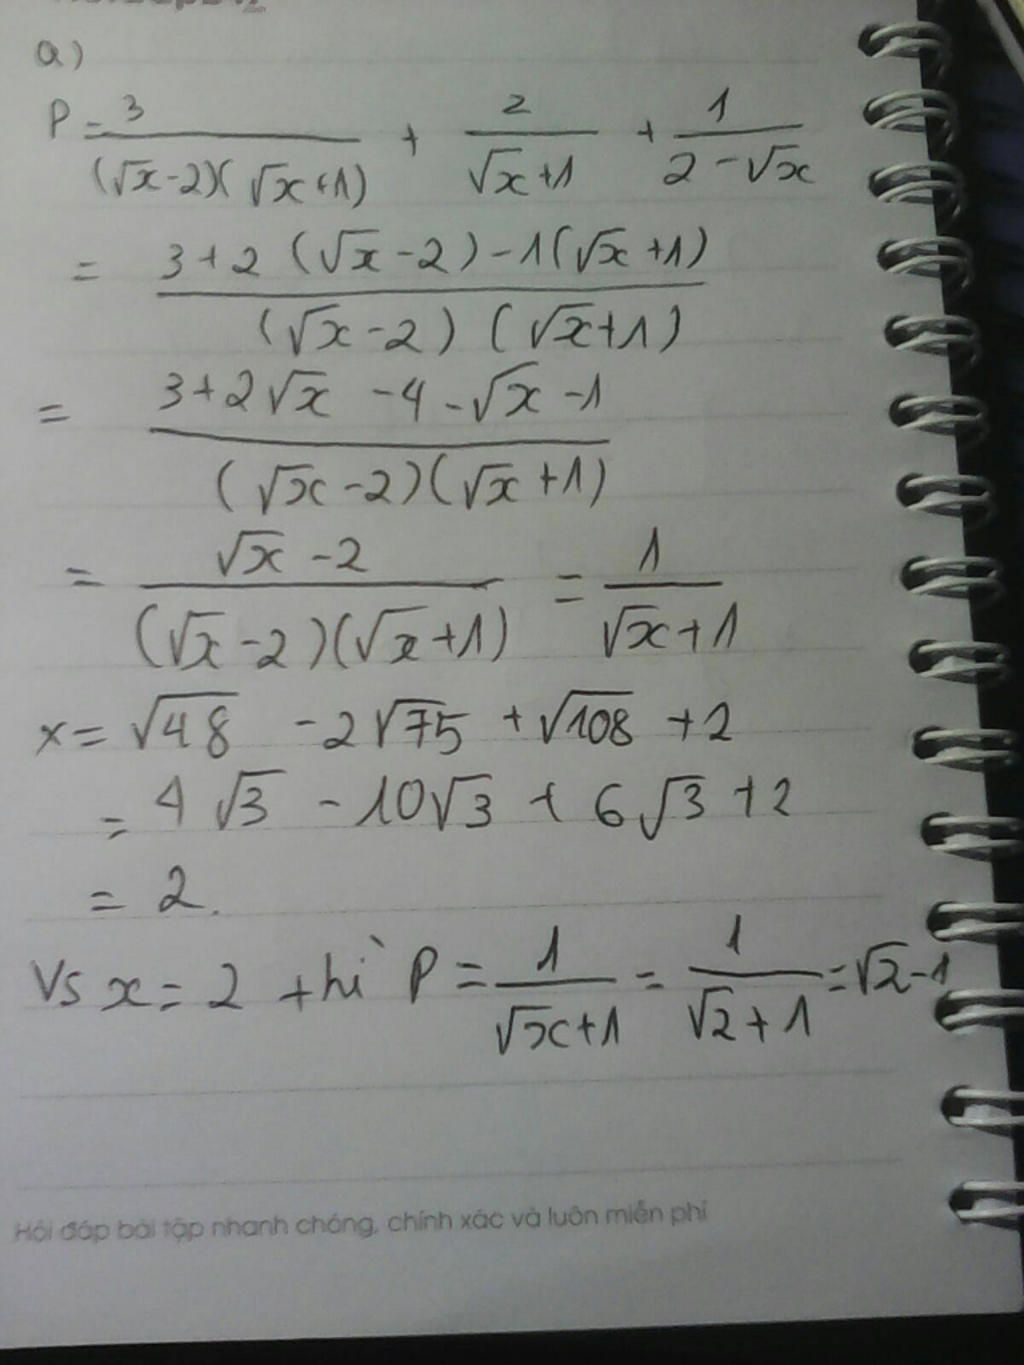 a)
P = 3/((√x-2)(√x+1)) + 2/(√x+1) + 1/(2-√x)
= (3+2(√x-2)-1(√x+1))/((√x-2)(√x+1))
= (3+2√x-4-√x-1)/((√x-2)(√x+1))
= (√x-2)/((√x-2)(√x+1)) = 1/(√x+1)
x = √48 - 2√75 + √108 + 2
= 4√3 - 10√3 + 6√3 + 2
= 2.
Vs x = 2 thì P = 1/(√x+1) = 1/(√2+1) = √2-1
Hỏi đáp bài tập nhanh chóng, chính xác và luôn miễn phí